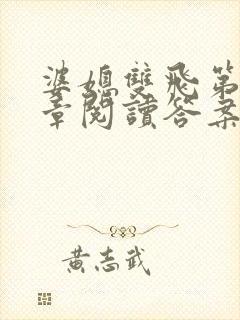 婆媳雙飛第
章閱讀答案
黃志武